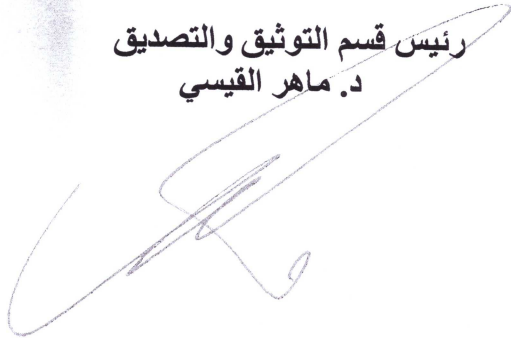 رئيس قسم التوثيق والتصديق
د. ماهر القيسي